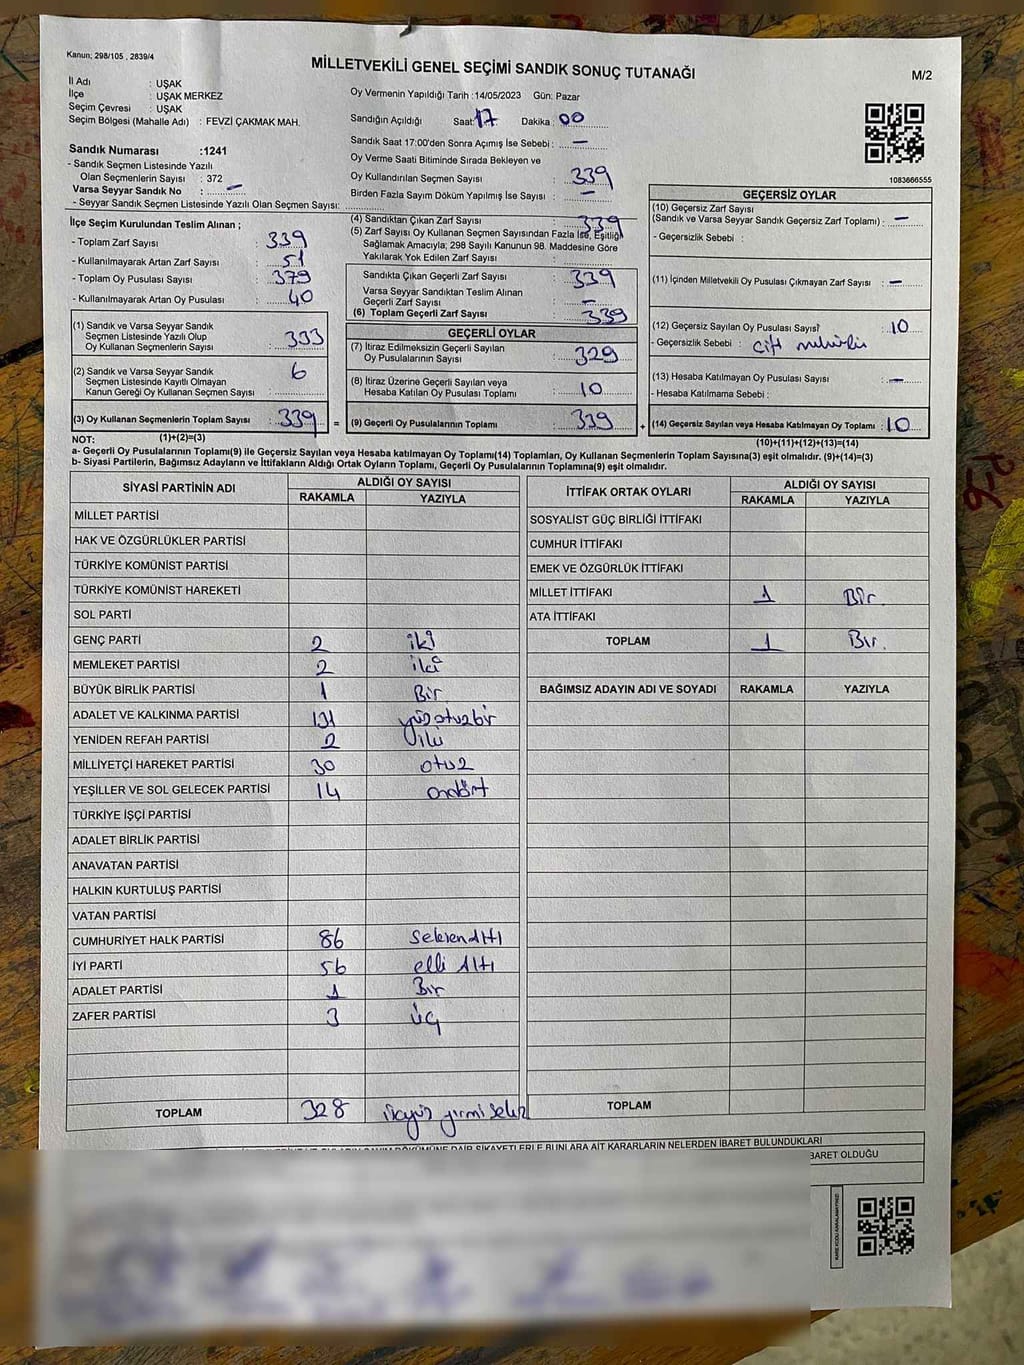 Kanun; 298/105 , 2839/4
MİLLETVEKİLİ GENEL SEÇİMİ SANDIK SONUÇ TUTANAĞI
M/2
İl Adı : UŞAK
İlçe : UŞAK MERKEZ
Seçim Çevresi : UŞAK
Seçim Bölgesi (Mahalle Adı) : FEVZİ ÇAKMAK MAH.
Sandık Numarası :1241
- Sandık Seçmen Listesinde Yazılı
Olan Seçmenlerin Sayısı : 372
Varsa Seyyar Sandık No : –
- Seyyar Sandık Seçmen Listesinde Yazılı Olan Seçmen Sayısı:
Oy Vermenin Yapıldığı Tarih :14/05/2023 Gün: Pazar
Sandığın Açıldığı Saat: 17 Dakika: 00
Sandık Saat 17:00'den Sonra Açımış İse Sebebi : –
Oy Verme Saati Bitiminde Sırada Bekleyen ve
Oy Kullandırılan Seçmen Sayısı : 339
Birden Fazla Sayım Döküm Yapılmış İse Sayısı : –
1083666555
İlçe Seçim Kurulundan Teslim Alınan ;
- Toplam Zarf Sayısı : 339
- Kullanılmayarak Artan Zarf Sayısı : 51
- Toplam Oy Pusulası Sayısı : 379
- Kullanılmayarak Artan Oy Pusulası : 40
(1) Sandık ve Varsa Seyyar Sandık
Seçmen Listesinde Yazılı Olup
Oy Kullanan Seçmenlerin Sayısı : 333
(2) Sandık ve Varsa Seyyar Sandık
Seçmen Listesinde Kayıtlı Olmayan
Kanun Gereği Oy Kullanan Seçmen Sayısı : 6
(3) Oy Kullanan Seçmenlerin Toplam Sayısı : 339 =
(4) Sandıktan Çıkan Zarf Sayısı : 339
(5) Zarf Sayısı Oy Kullanan Seçmen Sayısından Fazla İse, Eşitliği
Sağlamak Amacıyla; 298 Sayılı Kanunun 98. Maddesine Göre
Yakılarak Yok Edilen Zarf Sayısı :
Sandıkta Çıkan Geçerli Zarf Sayısı : 339
Varsa Seyyar Sandıktan Teslim Alınan
Geçerli Zarf Sayısı : –
(6) Toplam Geçerli Zarf Sayısı : 339
GEÇERLİ OYLAR
(7) İtiraz Edilmeksizin Geçerli Sayılan
Oy Pusulalarının Sayısı : 329
(8) İtiraz Üzerine Geçerli Sayılan veya
Hesaba Katılan Oy Pusulası Toplamı : 10
(9) Geçerli Oy Pusulalarının Toplamı : 339 +
GEÇERSİZ OYLAR
(10) Geçersiz Zarf Sayısı
(Sandık ve Varsa Seyyar Sandık Geçersiz Zarf Toplamı) : –
- Geçersizlik Sebebi :
(11) İçinden Milletvekili Oy Pusulası Çıkmayan Zarf Sayısı : –
(12) Geçersiz Sayılan Oy Pusulası Sayısı : 10
- Geçersizlik Sebebi : çift mühürlü
(13) Hesaba Katılmayan Oy Pusulası Sayısı : –
- Hesaba Katılmama Sebebi :
(14) Geçersiz Sayılan veya Hesaba Katılmayan Oy Toplamı : 10
NOT: (1)+(2)=(3)
(10)+(11)+(12)+(13)=(14)
a- Geçerli Oy Pusulalarının Toplamı(9) ile Geçersiz Sayılan veya Hesaba Katılmayan Oy Toplamı(14) Toplamları, Oy Kullanan Seçmenlerin Toplam Sayısına(3) eşit olmalıdır. (9)+(14)=(3)
b- Siyasi Partilerin, Bağımsız Adayların ve İttifakların Aldığı Ortak Oyların Toplamı, Geçerli Oy Pusulalarının Toplamına(9) eşit olmalıdır.
SİYASİ PARTİNİN ADI ALDIĞI OY SAYISI
RAKAMLA YAZIYLA
MİLLET PARTİSİ
HAK VE ÖZGÜRLÜKLER PARTİSİ
TÜRKİYE KOMÜNİST PARTİSİ
TÜRKİYE KOMÜNİST HAREKETİ
SOL PARTİ
GENÇ PARTİ 2 iki
MEMLEKET PARTİSİ 2 iki
BÜYÜK BİRLİK PARTİSİ 1 Bir
ADALET VE KALKINMA PARTİSİ 131 yüzotuzbir
YENİDEN REFAH PARTİSİ 2 iki
MİLLİYETÇİ HAREKET PARTİSİ 30 otuz
YEŞİLLER VE SOL GELECEK PARTİSİ 14 ondört
TÜRKİYE İŞÇİ PARTİSİ
ADALET BİRLİK PARTİSİ
ANAVATAN PARTİSİ
HALKIN KURTULUŞ PARTİSİ
VATAN PARTİSİ
CUMHURİYET HALK PARTİSİ 86 seksenAltı
İYİ PARTİ 56 elli Altı
ADALET PARTİSİ 1 Bir
ZAFER PARTİSİ 3 üç
TOPLAM 328 üçyüz yirmi sekiz
İTTİFAK ORTAK OYLARI ALDIĞI OY SAYISI
RAKAMLA YAZIYLA
SOSYALİST GÜÇ BİRLİĞİ İTTİFAKI
CUMHUR İTTİFAKI
EMEK VE ÖZGÜRLÜK İTTİFAKI
MİLLET İTTİFAKI 1 Bir.
ATA İTTİFAKI
TOPLAM 1 Bir.
BAĞIMSIZ ADAYIN ADI VE SOYADI RAKAMLA YAZIYLA
TOPLAM
ŞİKAYETLERLE BUNLARA AİT KARARLARIN NELERDEN İBARET BULUNDUKLARI
BARET OLDUĞU